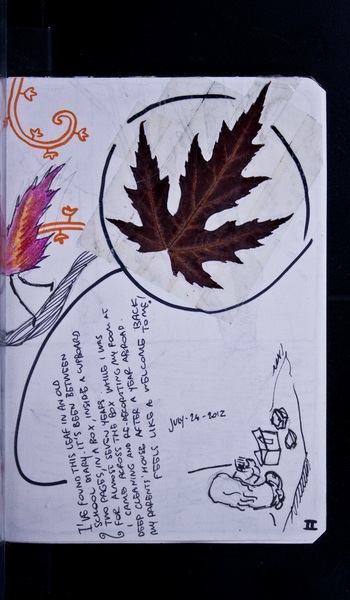 I'VE FOUND THIS LEAF IN AN OLD
SCHOOL DIARY. IT'S BEEN BETWEEN
TWO PAGES, IN A BOX, INSIDE A CUPBOARD
FOR ALMOST SEVEN YEARS
I CAME ACROSS THE BOX WHILE I WAS
DEEP CLEANING AND RE-DECORATING MY ROOM AT
MY PARENTS' HOUSE AFTER A YEAR ABROAD.
FEELS LIKE A WELCOME BACK
TO ME!
JULY-24-2012
II